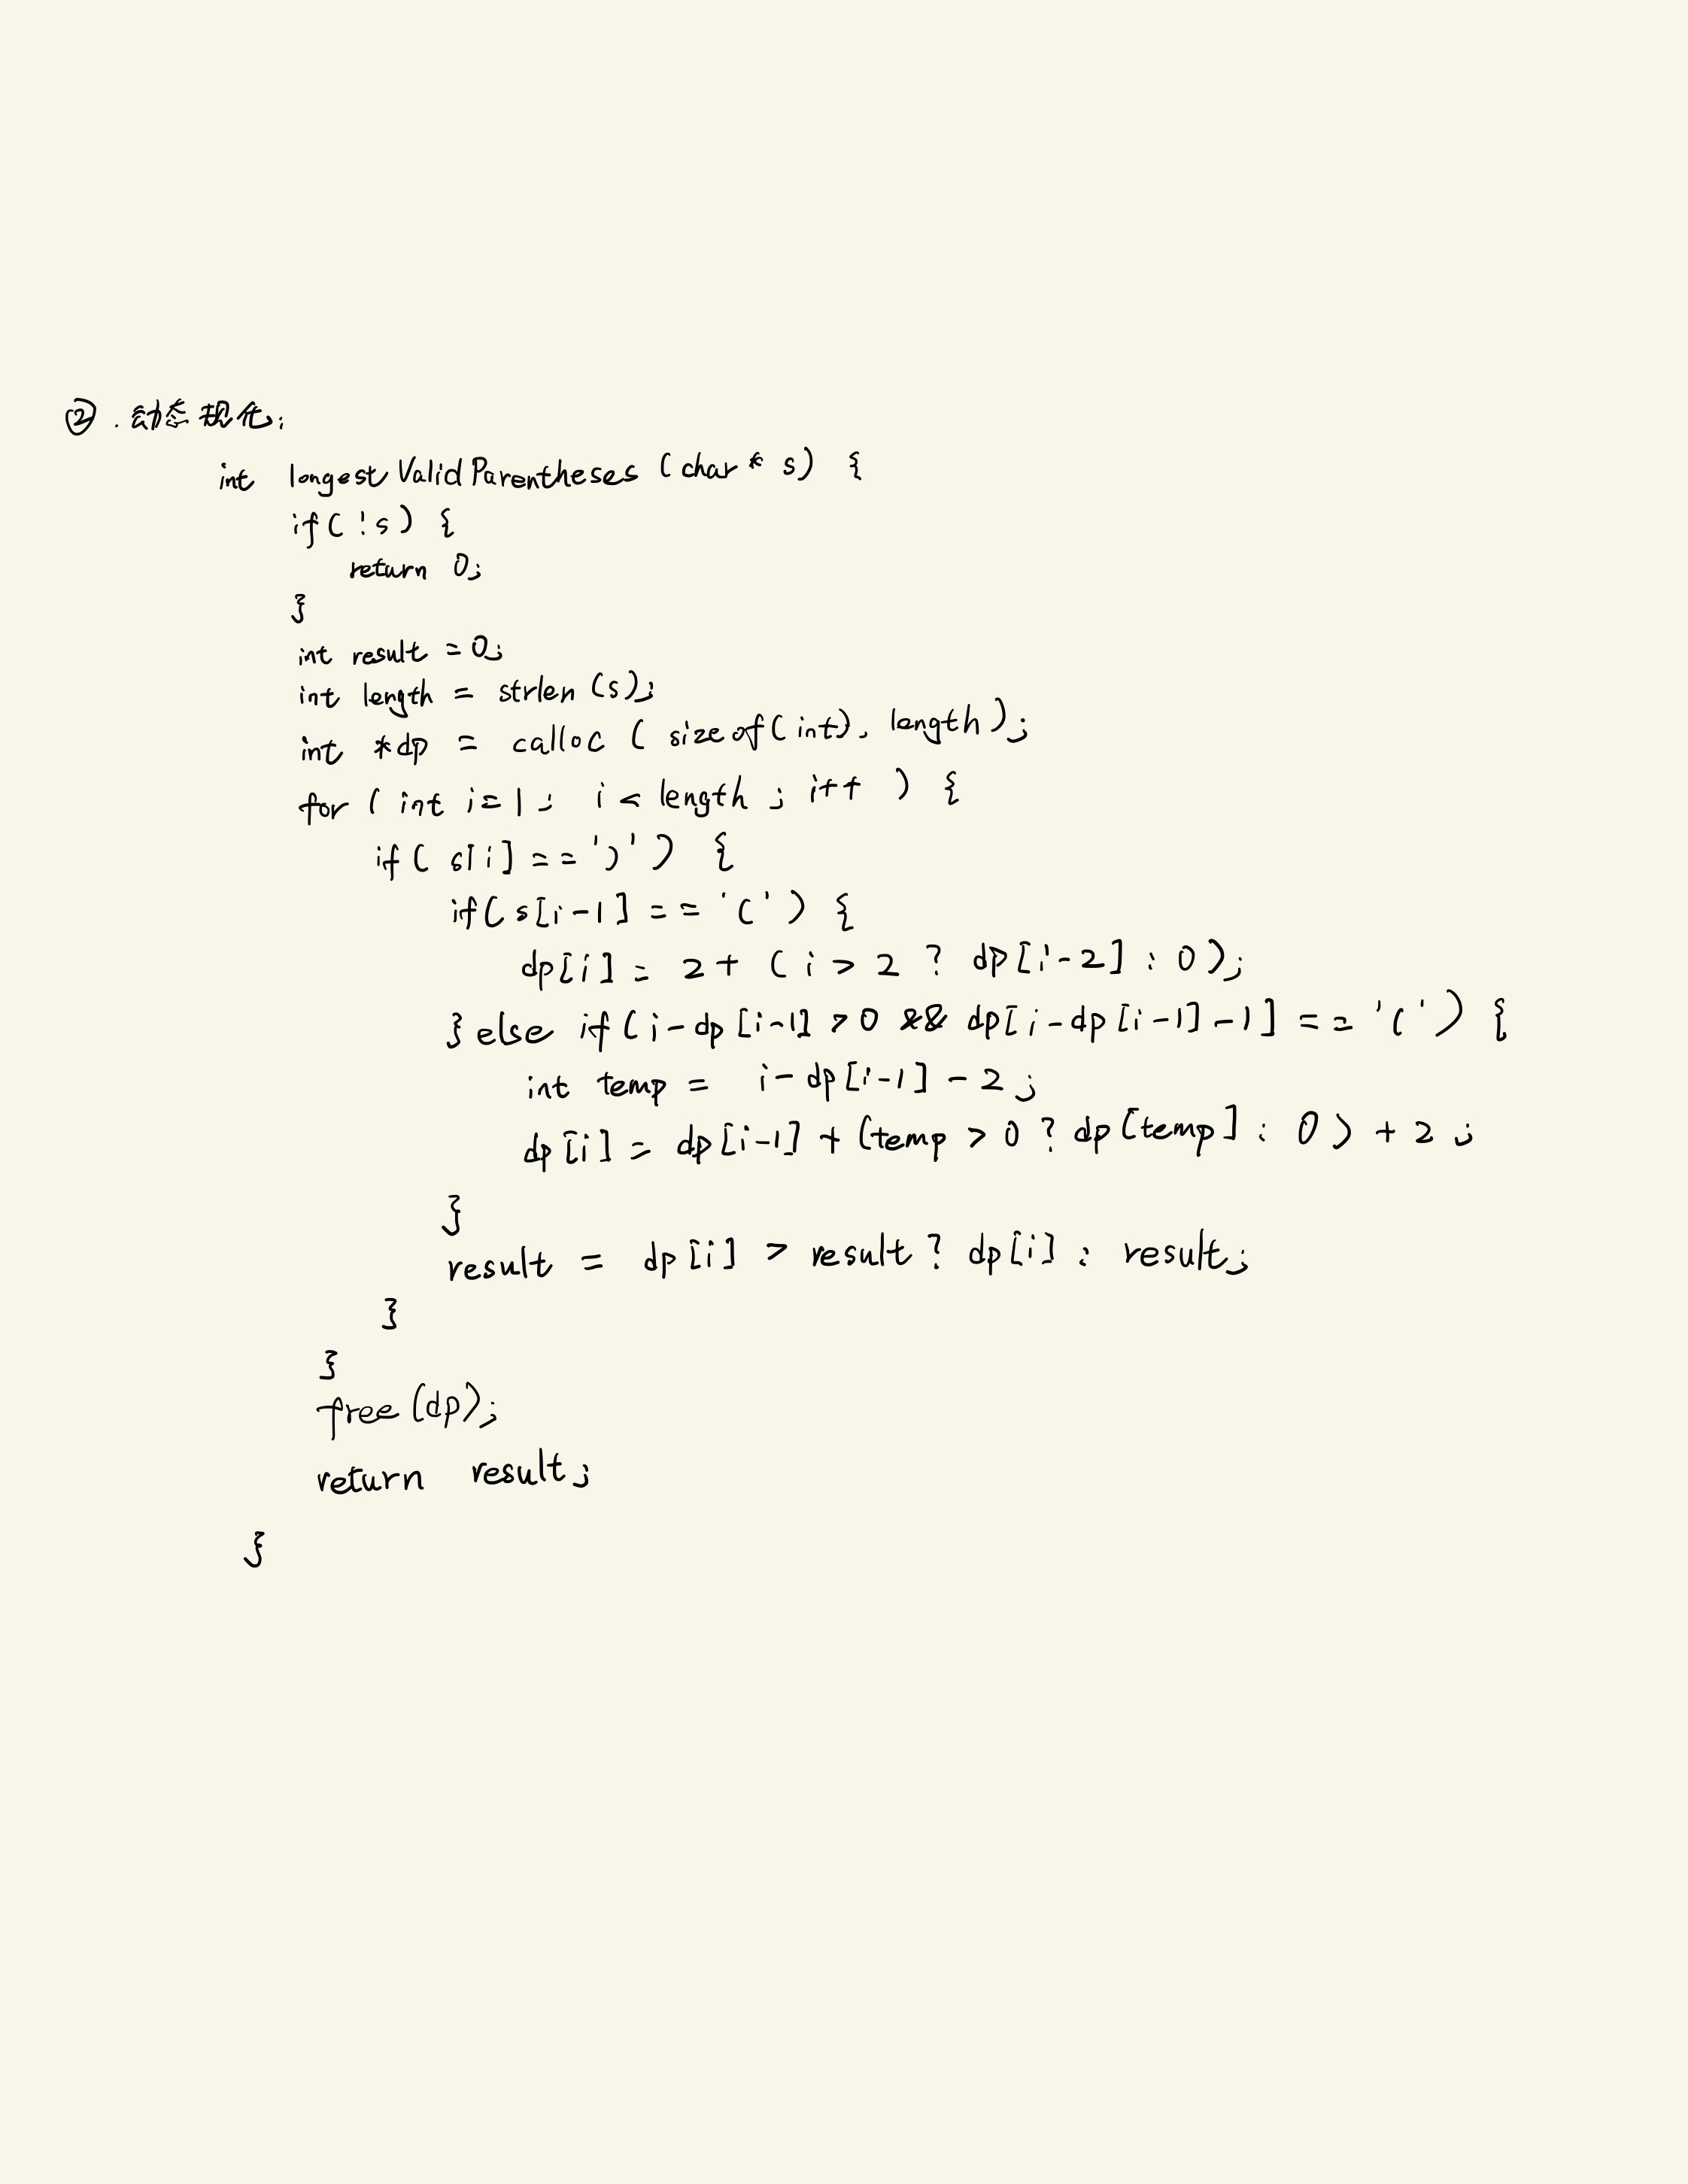 ②.动态规化:
int longestValidParentheses (char* s) {
if( !s) {
return 0;
}
int result =0;
int length = strlen (s);
int *dp = calloc ( sizeof(int), length );
for ( int i=1; i < length ; i++ ) {
if( s[i] == ')' ) {
if( s[i-1] == '(' ) {
dp[i] = 2+ ( i > 2 ? dp[i-2] : 0 );
} else if ( i-dp[i-1] >0 && dp[i-dp[i-1]-1] == '(' ) {
int temp = i-dp[i-1] -2 ;
dp[i] = dp[i-1] + (temp > 0 ? dp[temp] : 0 ) + 2 ;
}
result = dp[i] > result ? dp[i] : result;
}
}
free (dp);
return result;
}